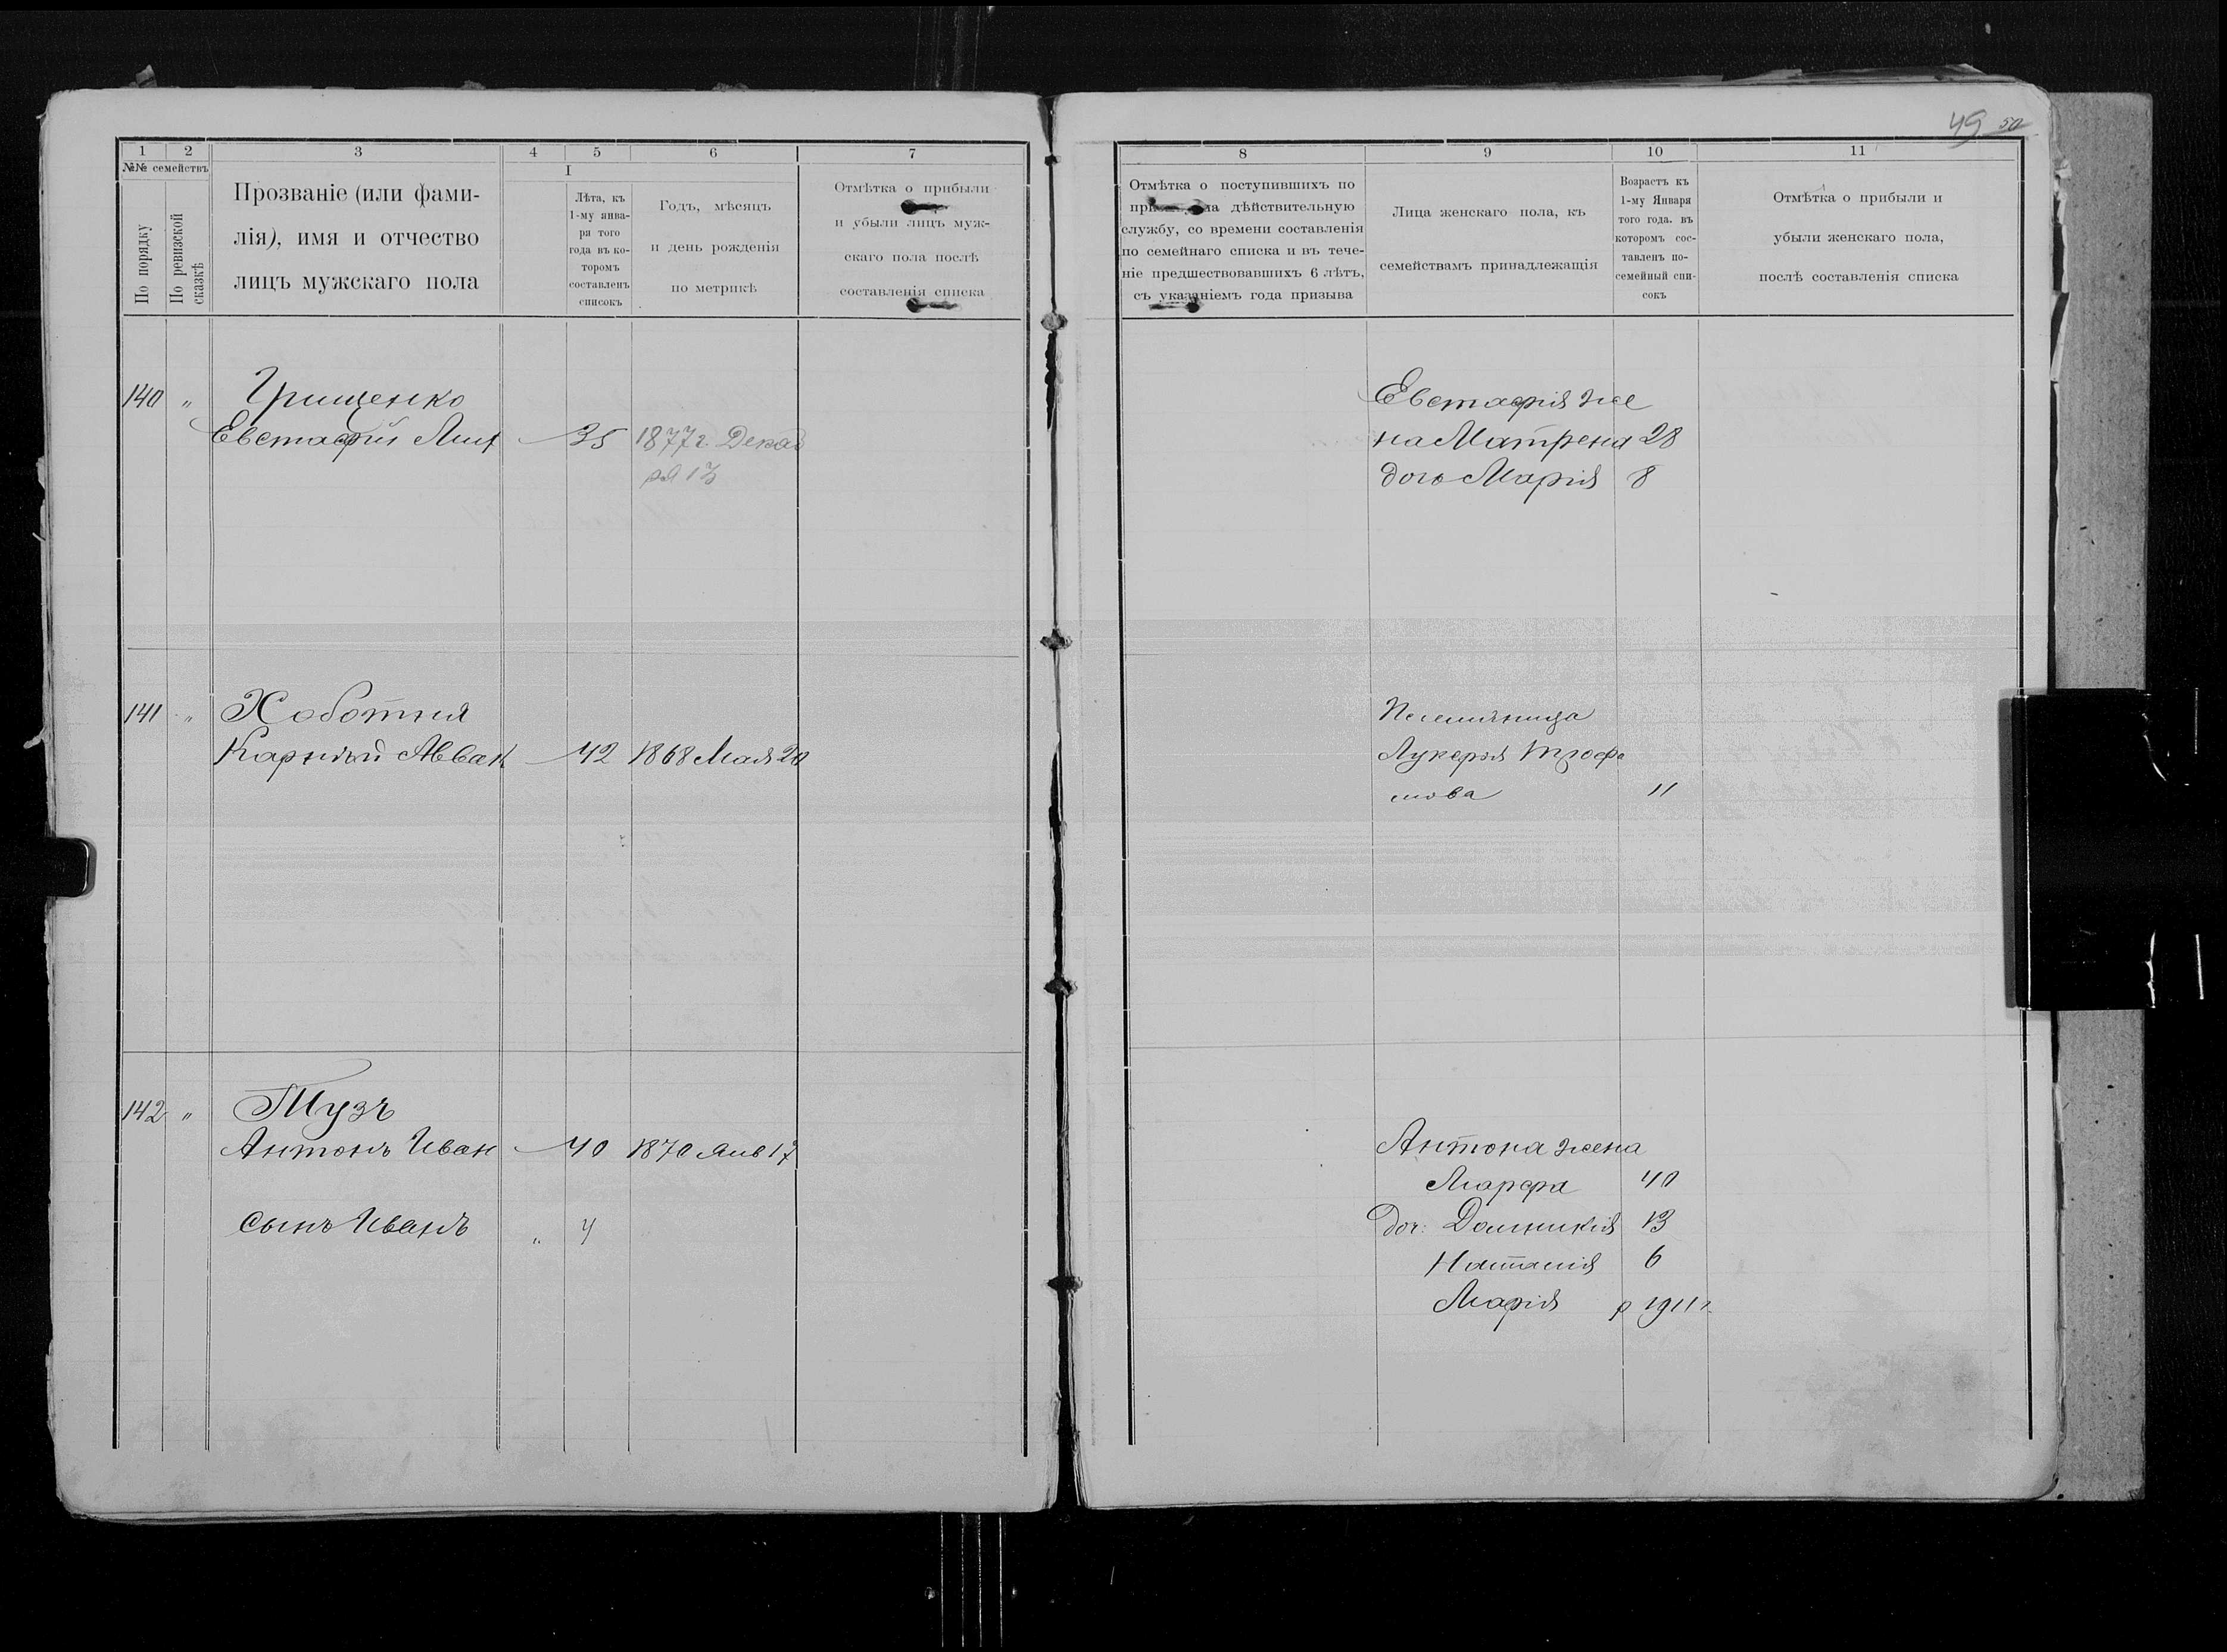 49 50
1 2 3 4 5 6 7
№№ семействъ
I
По порядку
По ревизской сказкѣ
Прозваніе (или фами-
лія), имя и отчество
лицъ мужскаго пола
Лѣта, къ
1-му янва-
ря того
года въ ко-
торомъ
составленъ
списокъ
Годъ, мѣсяцъ
и день рожденія
по метрикѣ
Отмѣтка о прибыли
и убыли лицъ муж-
скаго пола послѣ
составленія списка
140 " Грищенко
Евстафій Мих — 35 1877 г. Декаб
ря 13
141 " Хоботня
Карній Аввак — 42 1868 Мая 20
142 " Тузъ
Антонъ Иван — 40 1870 Янв 17
Сынъ Иванъ " 4
8 9 10 11
Отмѣтка о поступившихъ по
на дѣйствительную
службу, со времени составленія
по семейнаго списка и въ тече-
ніе предшествовавшихъ 6 лѣтъ,
съ указаніемъ года призыва
Лица женскаго пола, къ
семействамъ принадлежащія
Возрастъ къ
1-му Января
того года. въ
которомъ сос-
тавленъ по-
семейный спи-
сокъ
Отмѣтка о прибыли и
убыли женскаго пола,
послѣ составленія списка
Евстафія же
на Матрена 28
доч Марія 8
Племяница
Лукерія Трофи
мова 11
Антона жена
Марфа 40
доч: Домникія 13
Наталія 6
Марія р 1911 г